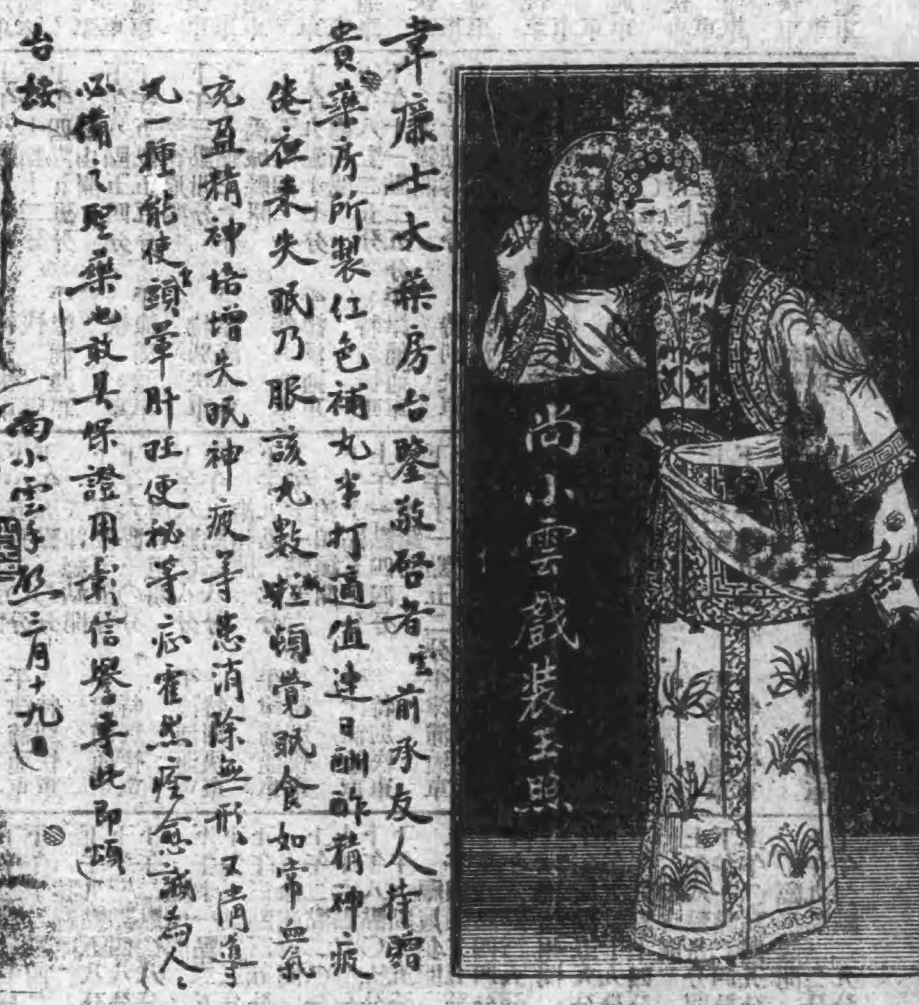 韋廉士大藥房台鑒敬啓者雲前承友人持贈
貴藥房所製红色補丸半打適值連日酬酢精神疲
倦夜来失眠乃服該丸数粒頓覺眠食如常血氣
充盈精神培增失眠神疲等患消除無形又清導
丸一種能使頭暈肝旺便秘等症霍然痊愈誠為人人
必備之聖藥也敢具保證用彰信譽專此即頌
台綏
尚小雲手啟三月十九日
尚小雲戲装玉照